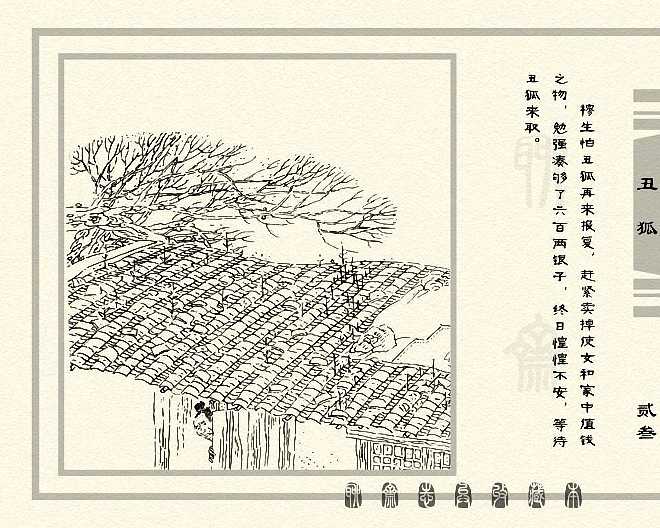 穆生怕丑狐再来报复，赶紧卖掉使女和家中值钱
之物，勉强凑够了六百两银子，终日惶惶不安，等待
丑狐来取。
丑狐
贰叁
聊斋志异收藏本